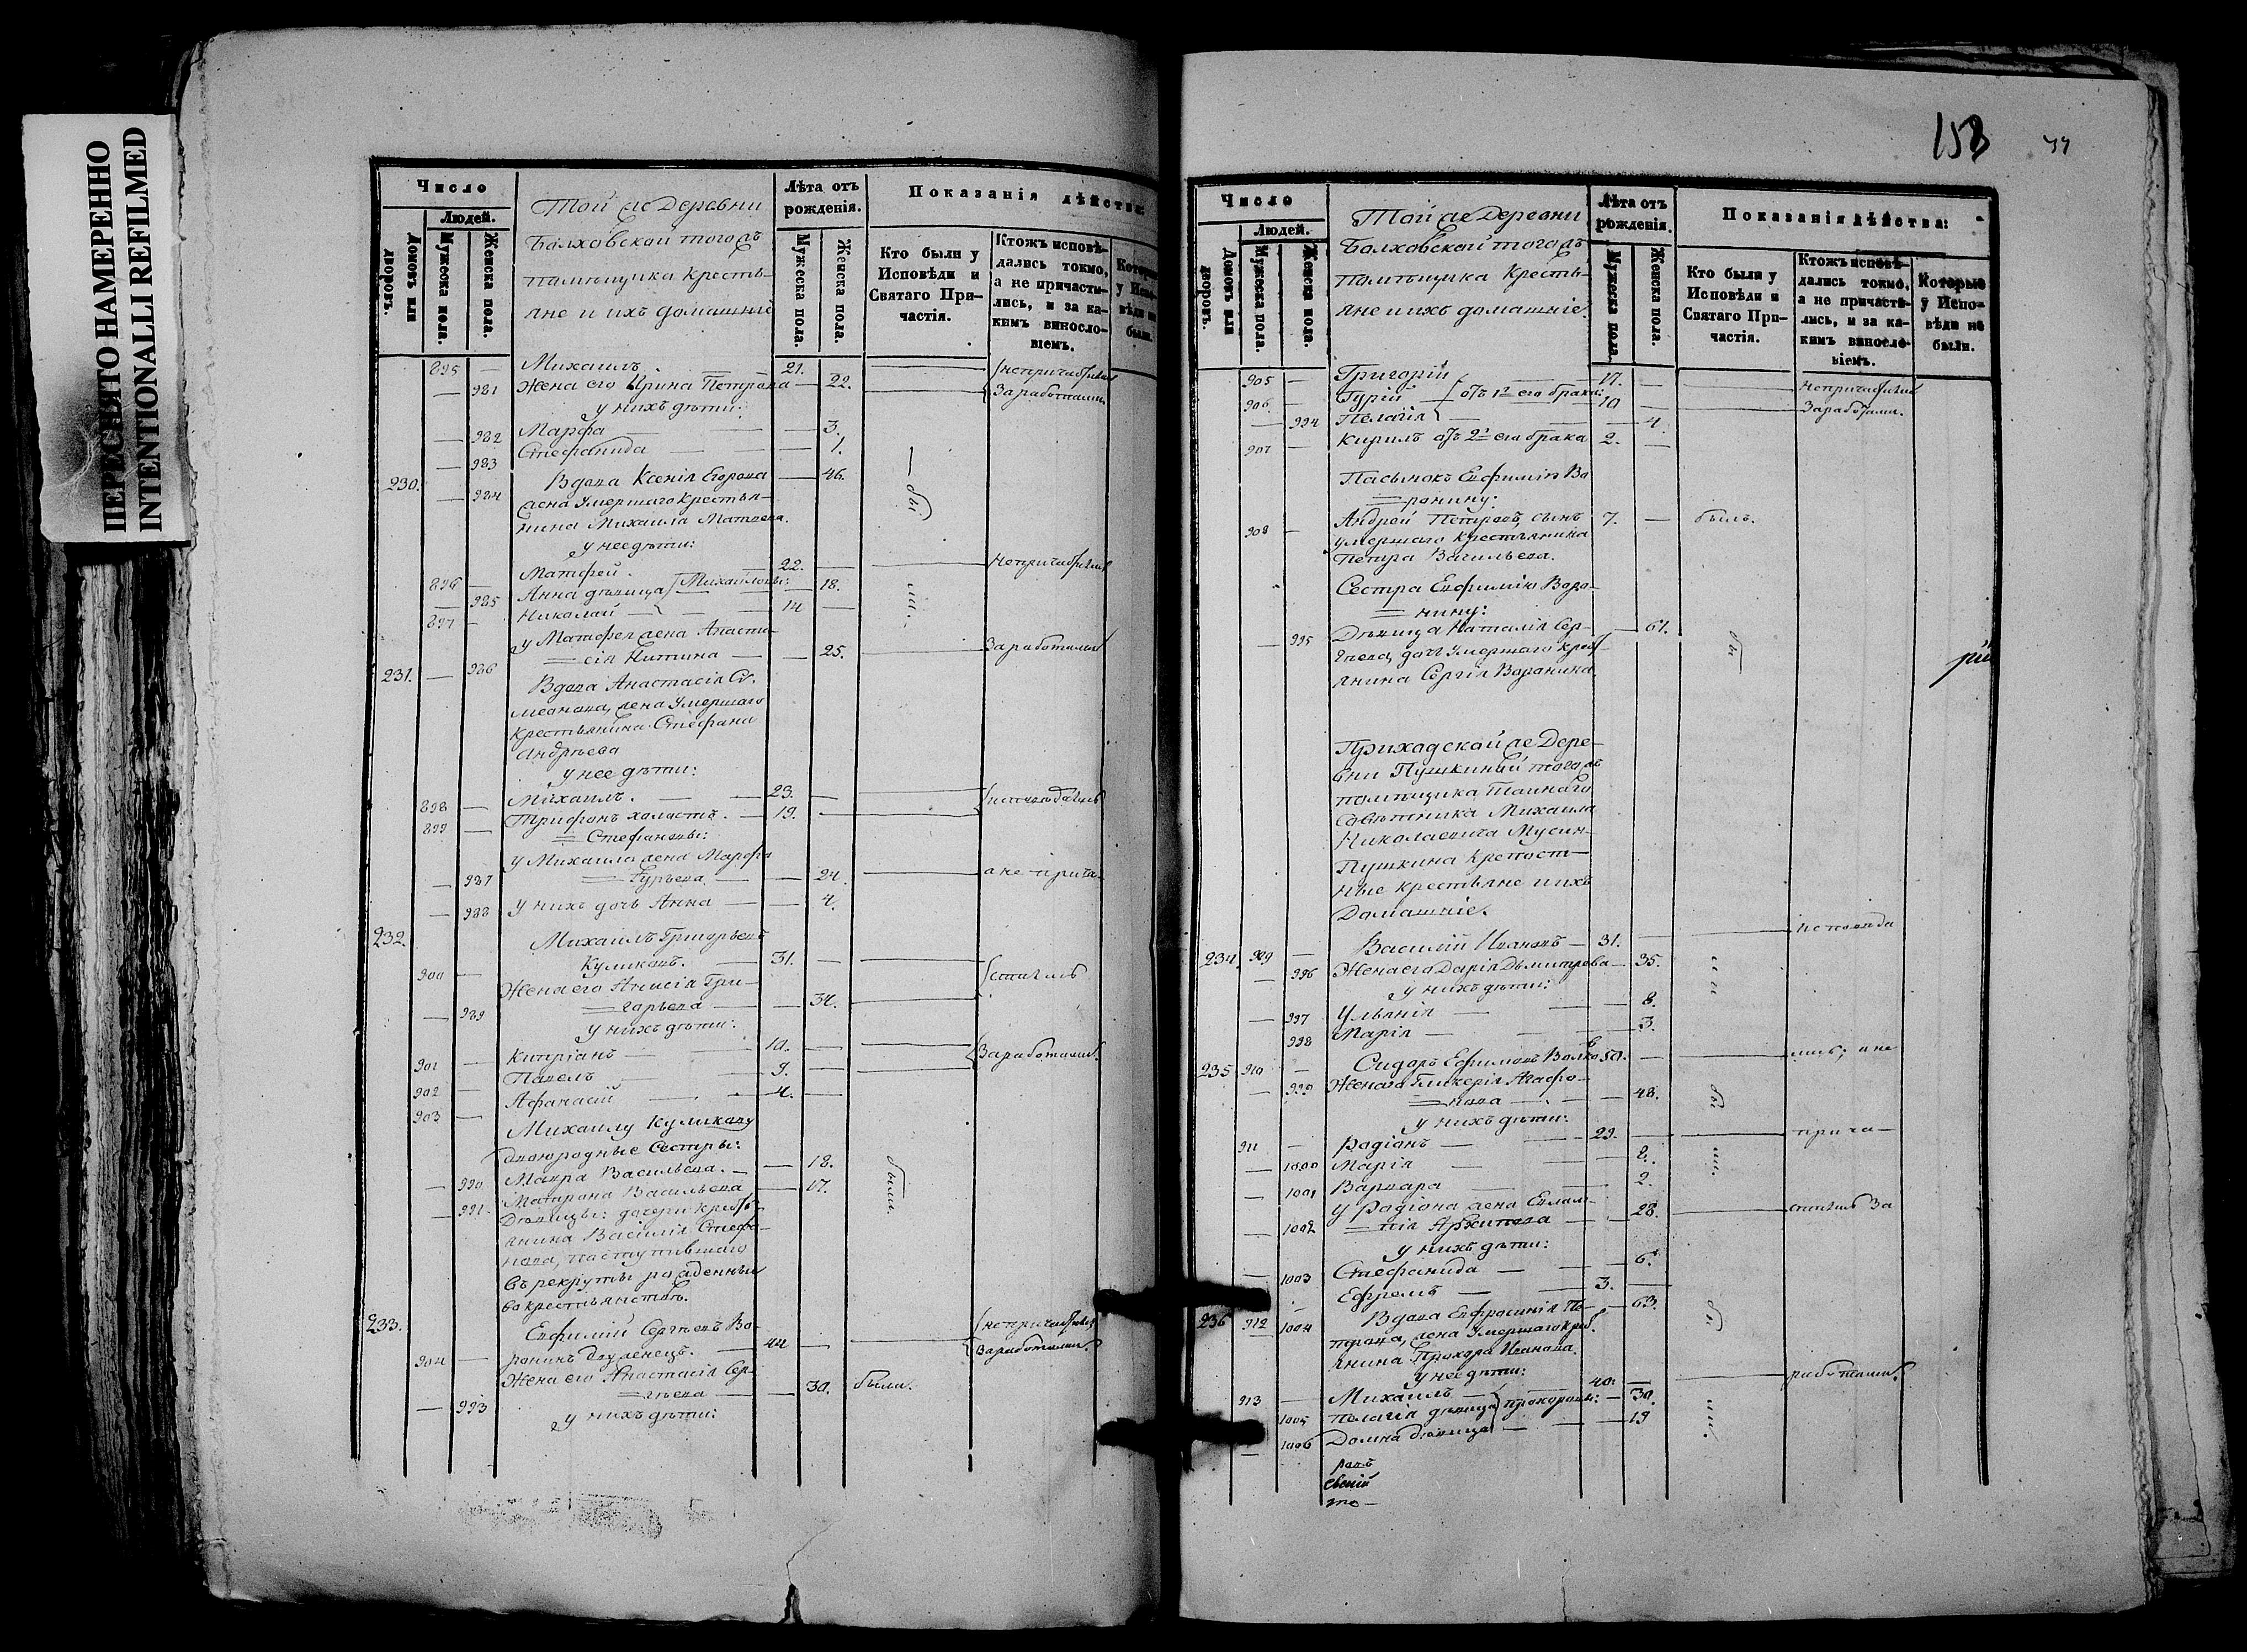 ПЕРЕСНЯТО НАМЕРЕННО
INTENTIONALLI REFILMED
Число
Людей.
Домовъ или дворовъ.
Мужеска пола.
Женска пола.
Той же Деревни
Болховской тогожъ
помѣщика Кресть-
яне и ихъ домашніе
Лѣта отъ рожденія.
Мужеска пола.
Женска пола.
Показанія дѣйства:
Кто были у Исповѣди и Святаго При-частія.
Ктожъ исповѣ-дались токмо, а не причасти-лись, и за ка-кимъ винослo-віемъ.
895 — Михаилъ. — 21. —
— 981 Жена его Ирина Петрова — 22.
Заработами.
у нихъ дѣти:
— 982 Марфа — 3.
— 983 Стефанида — 1.
230. — 984 Вдова Ксенія Егорова — 46. бы
жена умершаго крестья-
нина Михаила Матвеева.
у нее дѣти:
896 — Матфей. 22. —
— 985 Анна дѣвица Михайловы: — 18. ли.
897 — Николай — 14 —
у Матфея жена Анаста-
— 986 сія Никитина — 25.
231. — Вдова Анастасія Си-
меонова, жена умершаго
крестьянина Стефана
Андрѣева
у нее дѣти:
898 — Михаилъ. — 23. —
899 — Трифонъ холостъ. — 19.
Стефановы:
у Михаила жена Марфа
— 987 Гурьева. — 24. а не прича-
— 988 у нихъ дочь Анна — 4.
232. Михаилъ Григорьевъ
900 — Куликовъ. 31. —
Жена его Анисія Гри-
— 989 горьева — 34. стились
у нихъ дѣти:
901 — Кипріанъ — 10. — Заработами.
902 — Павелъ 9.
903 — Афанасій 4. —
Михаилу Куликову
двоюродные сестры:
— 990 Мавра Васильева. — 18. были.
— 991 Матрона Васильева — 17.
Дѣвицы: дочери крест-
янина Василія Стефа-
нова, поступившаго
въ рекруты рожденные
въ крестьянствѣ.
233. Евфимій Сергѣевъ Во-
904 — ронинъ двуженецъ. 44 — Заработами.
Жена его Анастасія Сер-
— 993 гѣева — 30. были.
у нихъ дѣти:
153
Число
Людей.
Домовъ или дворовъ.
Мужеска пола.
Женска пола.
Той же Деревни
Болховской тогожъ
помѣщика Кресть-
яне и ихъ домашніе.
Лѣта отъ рожденія.
Мужеска пола.
Женска пола.
Показанія дѣйства:
Кто были у Исповѣди и Святаго При-частія.
Ктожъ исповѣ-дались токмо, а не причасти-лись, и за ка-кимъ винослo-віемъ.
Которые у Испо-вѣди не были.
905 — Григорій — 17. —
906. — Гурій отъ 1го его брака: 10
— 994 Пелагія — 4. Заработами.
907 — Кирилъ отъ 2го его брака 2. —
Пасынокъ Евфимія Во
ронину:
908 — Андрей Петровъ, сынъ 7. — былъ.
умершаго крестьянина
Петра Васильева.
Сестра Евфимію Воро-
нину:
— 995 Дѣвица Наталія Сер- — 61. бы
гѣева, дочь умершаго крест-
янина Сергія Воронина.
Приходской же Дере-
вни Пушкиной тогожъ
помѣщика Тайнаго
Совѣтника Михаила
Николаевича Мусин-
Пушкина крѣпост-
ные крестьяне и ихъ
Домашніе.
234. 909 Василій Ивановъ — 31. — исповѣда
— 996 Жена его Дарія Дъмитрева — 35.
у нихъ дѣти:
— 997 Ульянія — 8.
— 998 Марія — 3.
235 910 — Сидоръ Ефимовъ Волковъ 50. — лись; а не
— 999 Жена его Гликерія Агафо-
нова — 48. бы
у нихъ дѣти:
911 — Родіонъ — 29. прича-
— 1000 Марія — 8. ли.
— 1001 Варвара — 2.
у Родіона жена Евлам-
— 1002 пія Архипова — 28. стились За
у нихъ дѣти:
— 1003 Стефанида — 6.
— Ефремъ — 3. —
236 912 1004 Вдова Евфросинія Пе- — 63. бы
трова, жена умершаго крест-
янина Прохора Иванова.
у нее дѣти:
913 — Михаилъ — 40. — работами.
1005 Пелагія дѣвица Прохоровы: — 30. ли.
— 1006 Домна дѣвица — 19